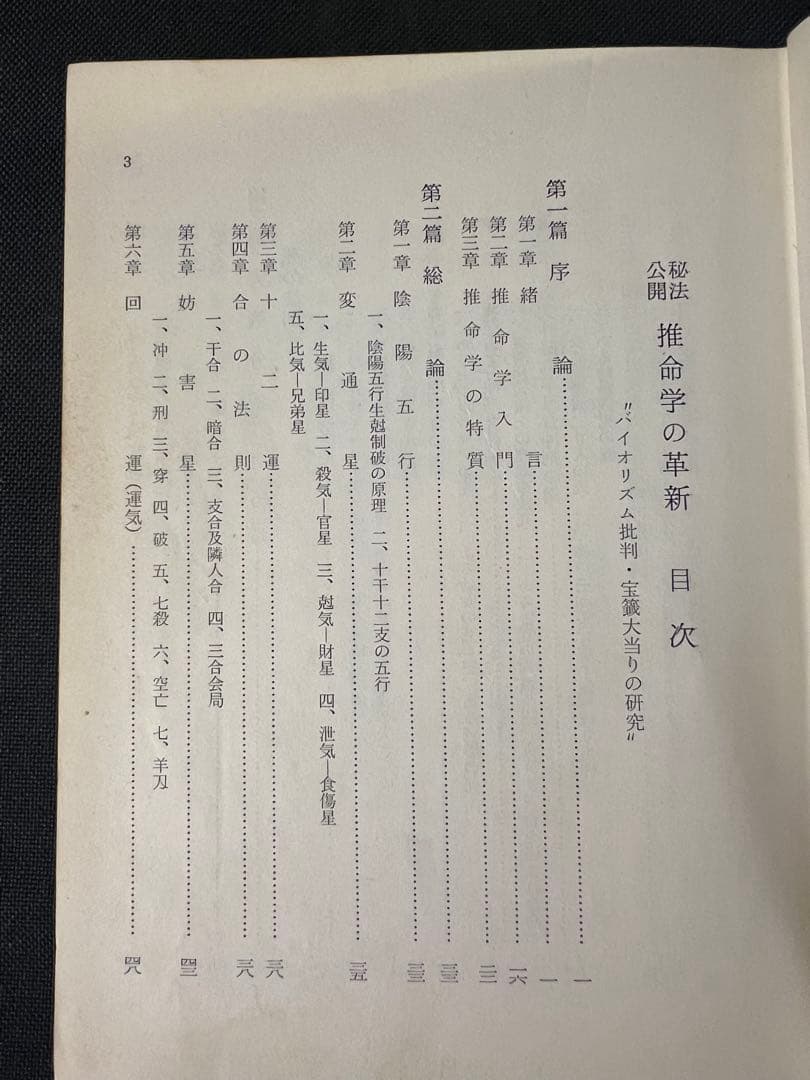 秘法公開 推命学の革新 目次
〝バイオリズム批判・宝籤大当りの研究〟
第一篇 序論……一
第一章 緒言……一
第二章 推命学入門……一六
第三章 推命学の特質……
第二篇 総論……
第一章 陰陽五行……
一、陰陽五行生尅制破の原理 二、十干十二支の五行
第二章 変通星……
一、生気―印星 二、殺気―官星 三、尅気―財星 四、泄気―食傷星
五、比気―兄弟星
第三章 十二運……
第四章 合の法則……
一、干合 二、暗合 三、支合及隣人合 四、三合会局
第五章 妨害星……四三
一、冲 二、刑 三、穿 四、破 五、七殺 六、空亡 七、羊刄
第六章 回運（運気）……四八
3